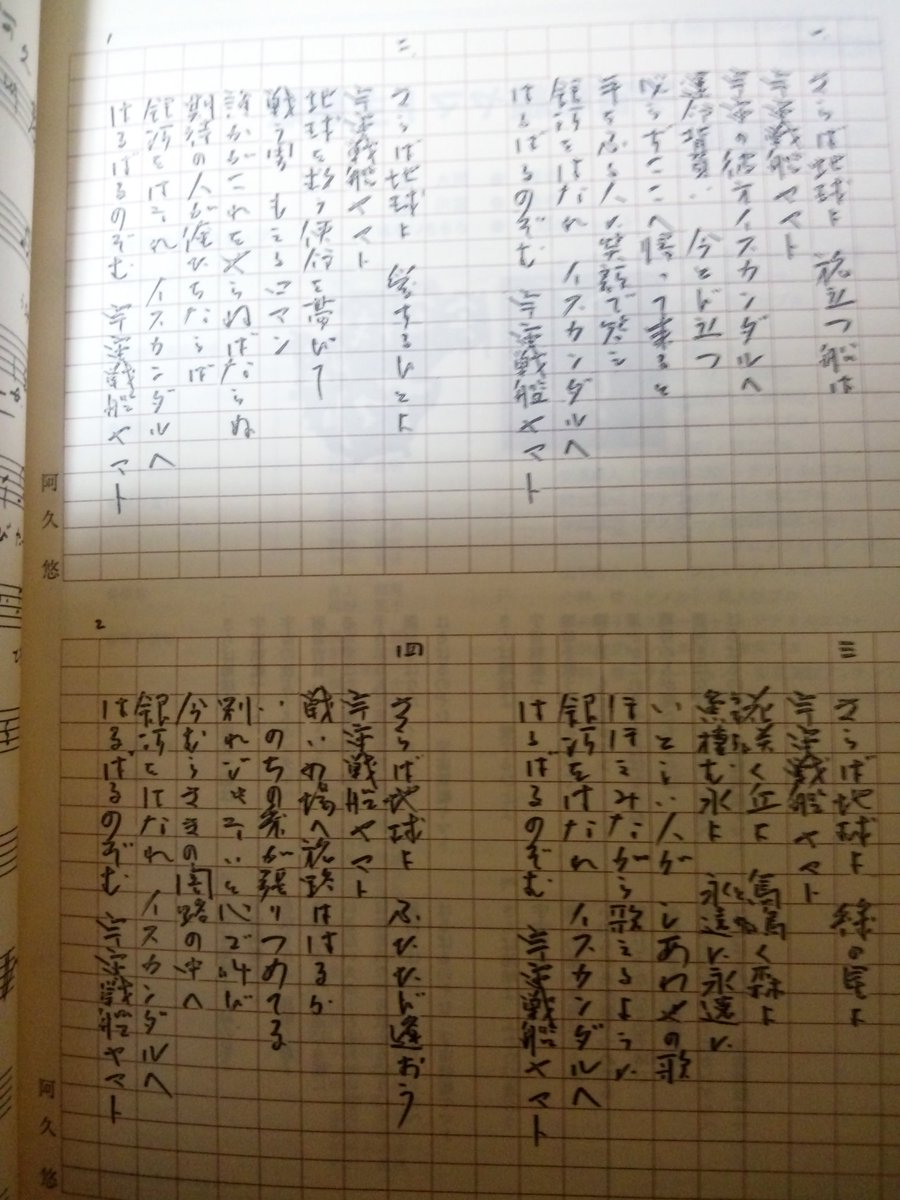 一
さらば地球よ　旅立つ船は
宇宙戦艦ヤマト
宇宙の彼方イスカンダルへ
運命背負い　今とび立つ
必らずここへ帰って来ると
手をふる人に笑顔で答え
銀河をはなれ　イスカンダルへ
はるばるのぞむ　宇宙戦艦ヤマト
二
さらば地球よ　愛するひとよ
宇宙戦艦ヤマト
地球を救う使命を帯びて
戦う男　もえるロマン
誰かがこれをやらねばならぬ
期待の人が俺たちならば
銀河をはなれ　イスカンダルへ
はるばるのぞむ　宇宙戦艦ヤマト
1
阿久悠
三
さらば地球よ　緑の星よ
宇宙戦艦ヤマト
花咲く丘よ　鳥鳴く森よ
魚棲む水よ　永遠に永遠に
いとしい人が　しあわせの歌
ほほえみながら　歌えるように
銀河をはなれ　イスカンダルへ
はるばるのぞむ　宇宙戦艦ヤマト
四
さらば地球よ　ふたたび逢おう
宇宙戦艦ヤマト
戦いの場へ旅路ははるか
いのちの糸が張りつめてる
別れじゃないと心で叫び
今むらさきの闇路の中へ
銀河をはなれ　イスカンダルへ
はるばるのぞむ　宇宙戦艦ヤマト
2
阿久悠